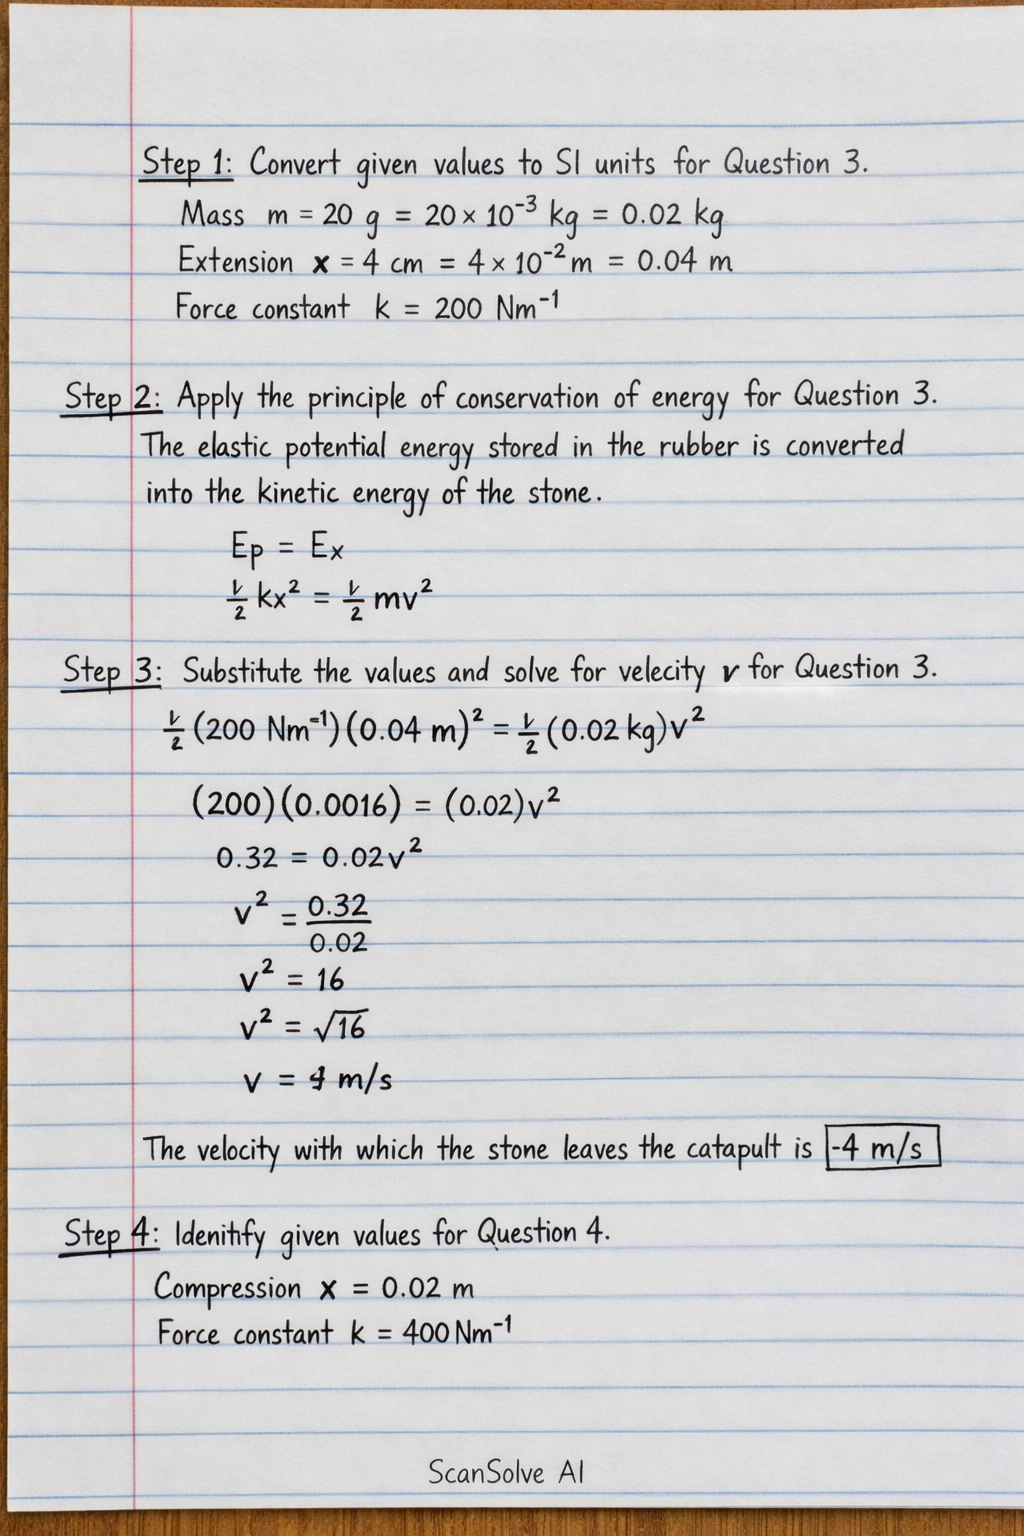 Step 1: Convert given values to SI units for Question 3.
Mass m = 20 g = 20 × 10⁻³ kg = 0.02 kg
Extension x = 4 cm = 4 × 10⁻² m = 0.04 m
Force constant k = 200 Nm⁻¹
Step 2: Apply the principle of conservation of energy for Question 3.
The elastic potential energy stored in the rubber is converted
into the kinetic energy of the stone.
Ep = Ex
½ kx² = ½ mv²
Step 3: Substitute the values and solve for velecity v for Question 3.
½ (200 Nm⁻¹)(0.04 m)² = ½ (0.02 kg)v²
(200)(0.0016) = (0.02)v²
0.32 = 0.02v²
v² = 0.32/0.02
v² = 16
v² = √16
v = 4 m/s
The velocity with which the stone leaves the catapult is -4 m/s
Step 4: Idenitify given values for Question 4.
Compression x = 0.02 m
Force constant k = 400 Nm⁻¹
ScanSolve AI